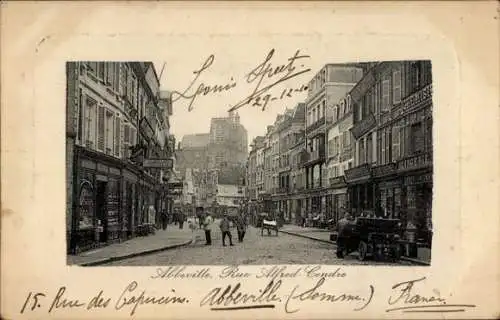 Louis Spect.
29-12-10
Abbeville, Rue Alfred Cendre
15. Rue des Capucins. Abbeville (Somme) France